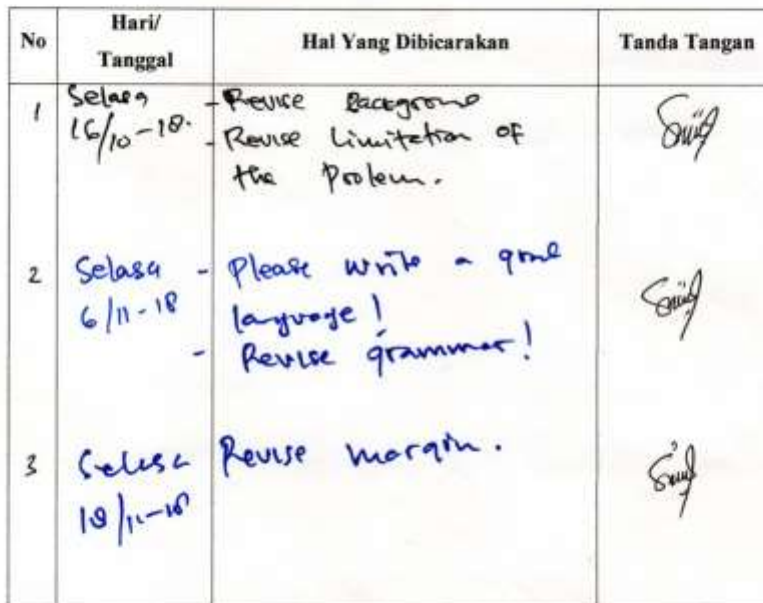 No Hari/ Tanggal Hal Yang Dibicarakan Tanda Tangan
1 Selasa - Revise Backgroun
16/10-18. - Revise Limitation of
the Problem.
2 Selasa - Please write a good
6/11-18 language!
- Revise grammar!
3 Selasa Revise margin.
/11-18